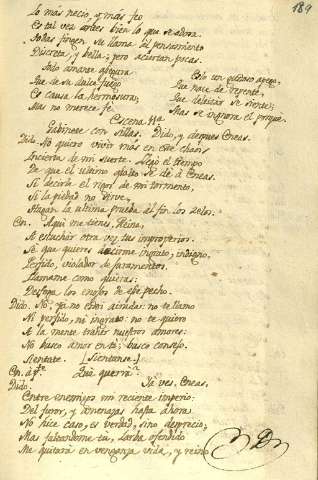 189
lo más necio, y más feo
es tal vez antes bien lo que se adora.
todas fingen su llama al pensamiento
Discreta, y bella; pero aciertan pocas.
Todo amante
que de su dulce fuego
Es causa la hermosura;
Mas no merece fe.
Es solo un
que nace de repente,
que deleitar se siente;
Mas se ignora el porque.
Escena 11a
Gabinete con sillas. Dido, y despues Eneas.
Dido. No quiero vivir más en este chaos
Incierta de mi suerte. Llegó el tiempo
De que el ultimo asalto se dé à Eneas.
Si decirle el rigor de mi tormento,
Si la piedad no sirve,
Hagan la ultima prueba al fin los zelos.
En. Aqui me tienes, Reina,
A escuchar otra vez tus improperios.
Sé que quieres decirme ingrato, indigno,
Perfido, violador de juramentos.
Llamame como quieras:
Desfoga los enojos de ese pecho.
Dido. No: ya no estoi airada: no te llamo
Ni perfido, ni ingrato: no te quiero
A la mente traher nuestros amores:
No busco amor en ti; busco consejo.
Sientate. (Sientanse.)
En. à pte. Qué querrá?
Dido. Ya ves, Eneas,
Entre enemigos mi reciente imperio:
Del furor, y amenazas hasta ahora
No hice caso, es verdad, sino desprecio;
Mas faltandome tu, Iarba ofendido
Me quitará en venganza vida, y reino.